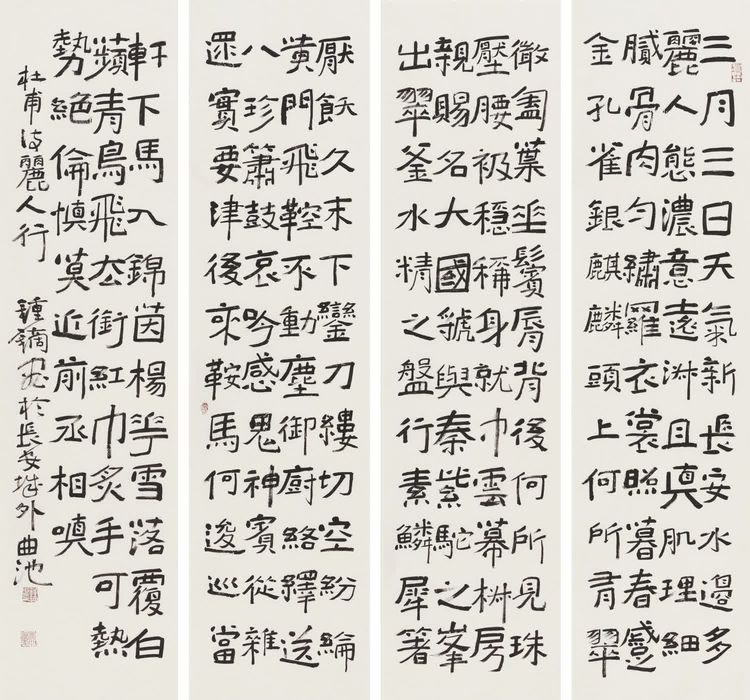 三月三日天氣新長安水邊多
麗人態濃意遠淑且真肌理細
膩骨肉勻繡羅衣裳照暮春蹙
金孔雀銀麒麟頭上何所有翠
微㔩葉垂鬢唇背後何所見珠
壓腰衱穩稱身就中雲幕椒房
親賜名大國虢與秦紫駝之峯
出翠釜水精之盤行素鱗犀箸
厭飫久未下鸞刀縷切空紛綸
黃門飛鞚不動塵御廚絡繹送
八珍簫鼓哀吟感鬼神賓從雜
遝實要津後來鞍馬何逡巡當
軒下馬入錦茵楊花雪落覆白
蘋青鳥飛去銜紅巾炙手可熱
勢絕倫慎莫近前丞相嗔
杜甫詩麗人行 鍾鏑書於長安城外曲池